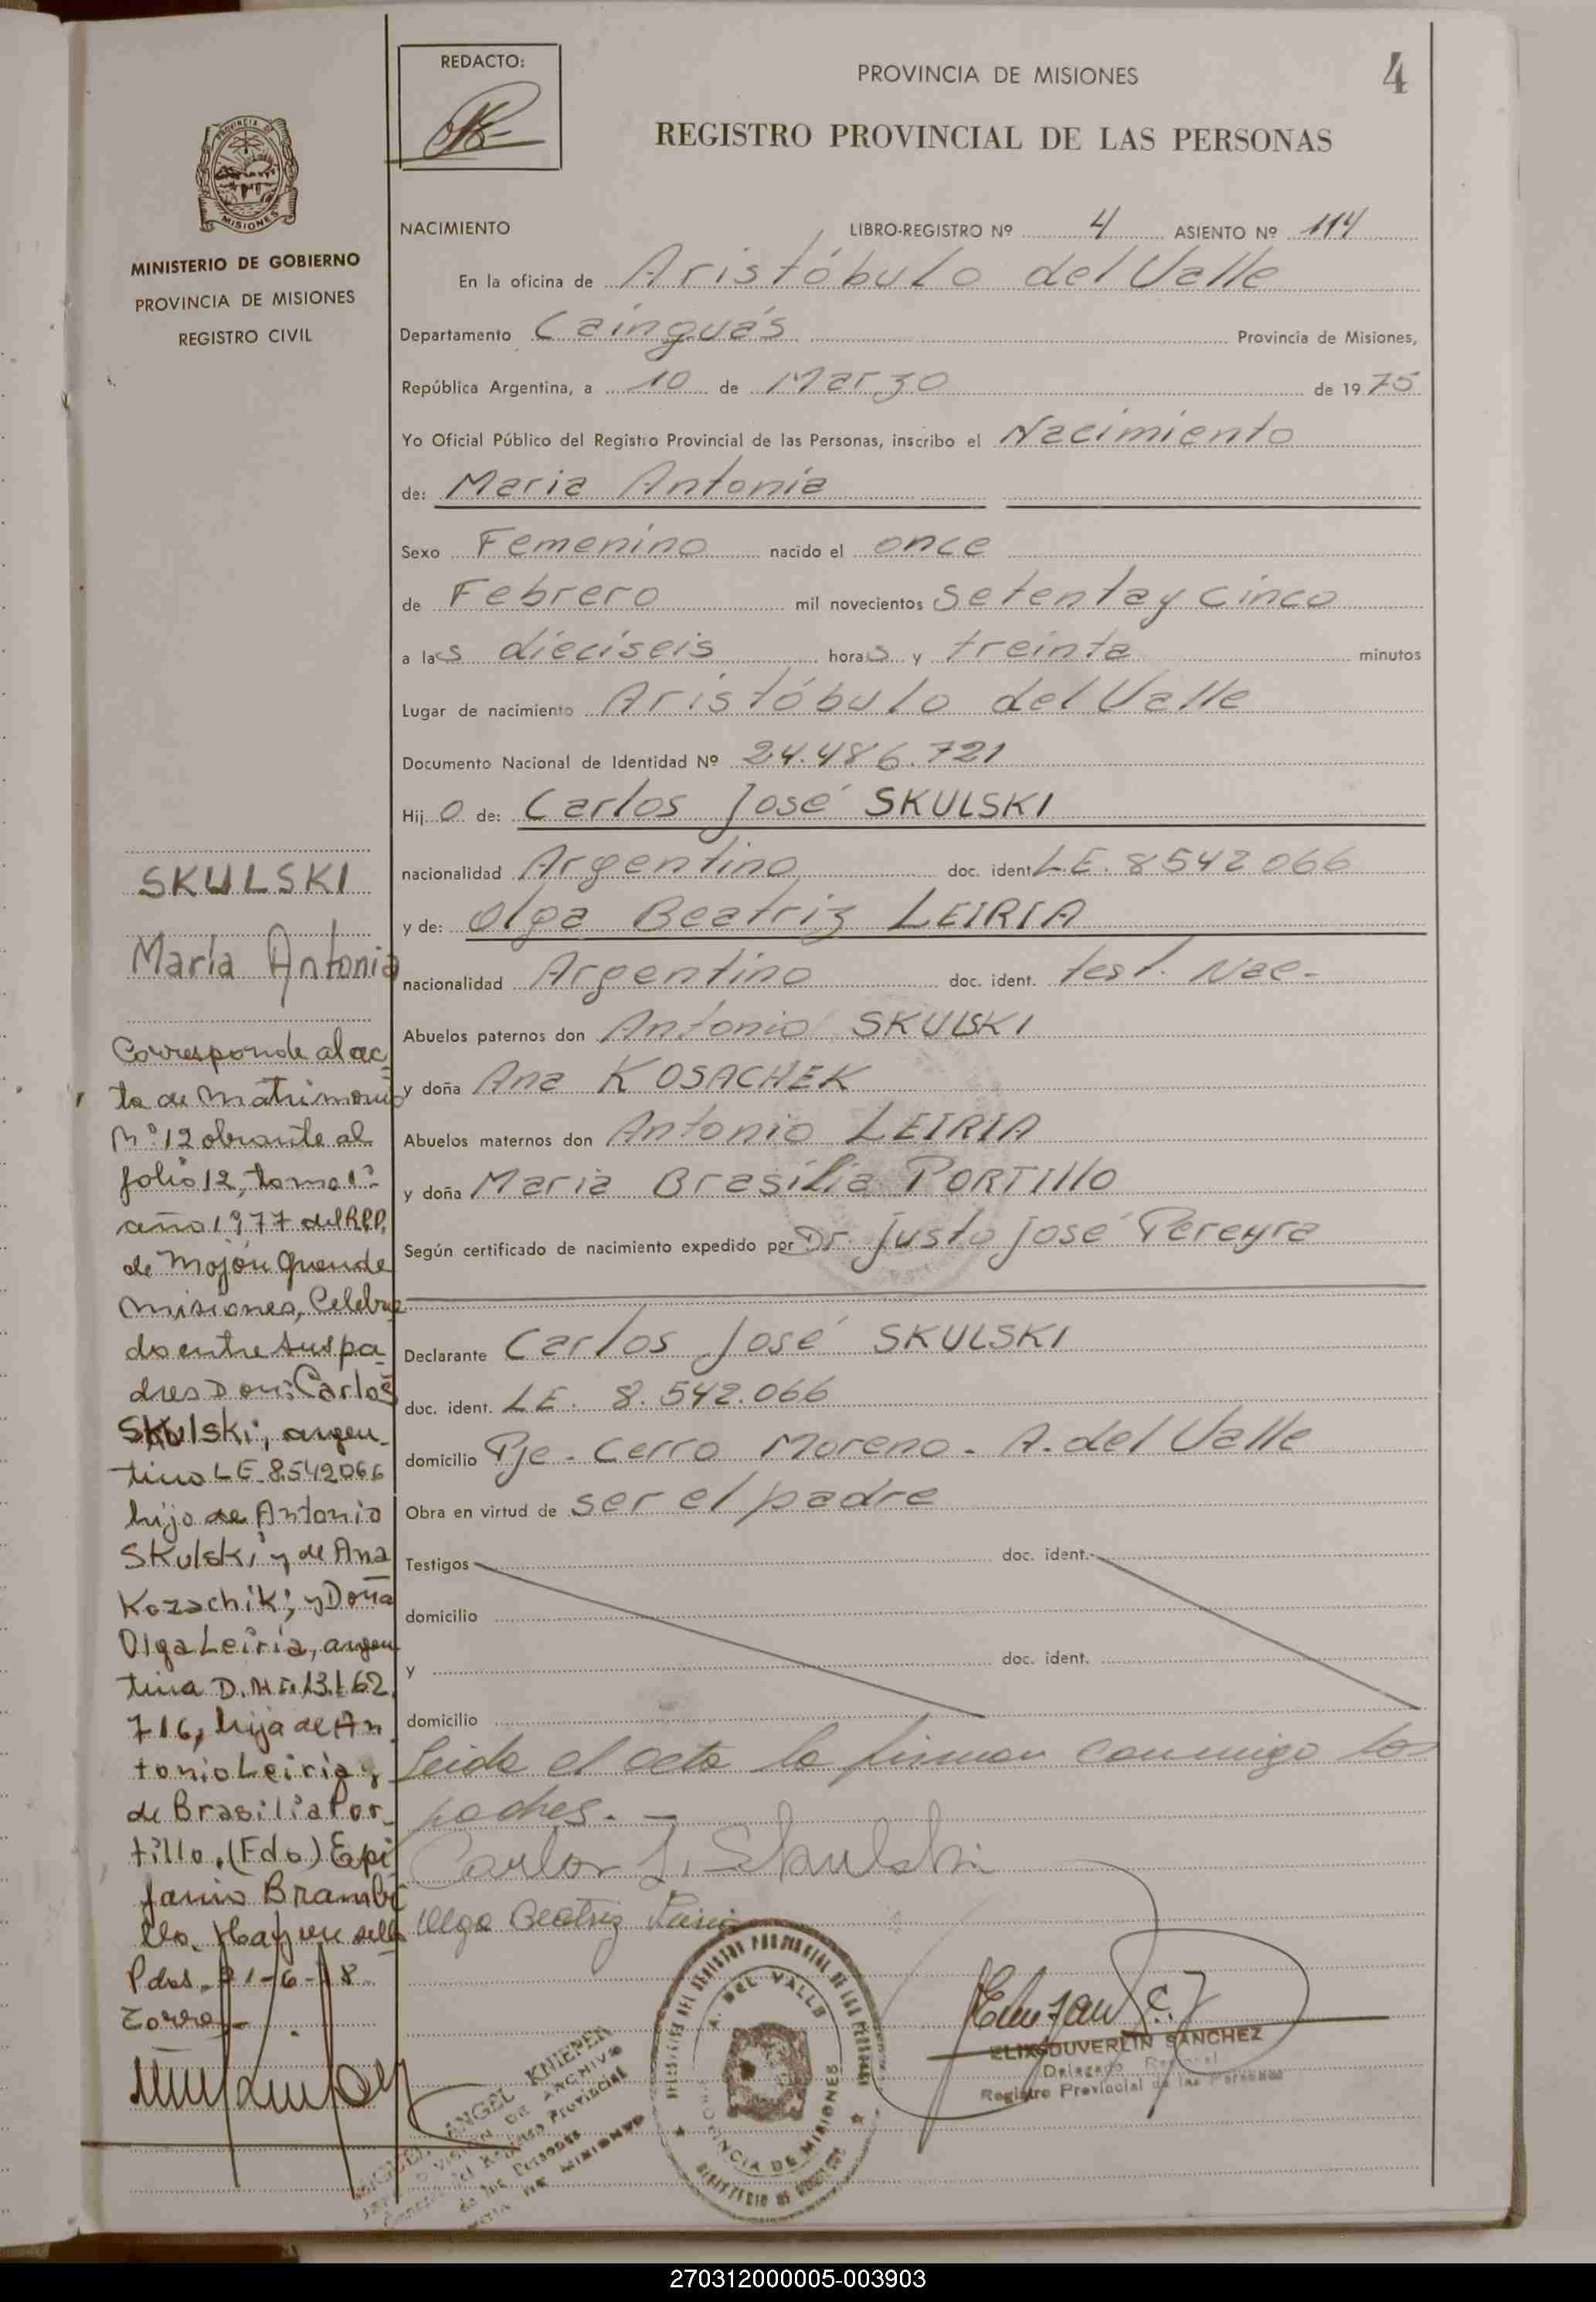 REDACTO:
PROVINCIA DE MISIONES
4
REGISTRO PROVINCIAL DE LAS PERSONAS
PROVINCIA DE
MISIONES
MINISTERIO DE GOBIERNO
PROVINCIA DE MISIONES
REGISTRO CIVIL
NACIMIENTO LIBRO-REGISTRO Nº 4 ASIENTO Nº 114
En la oficina de Aristóbulo del Valle
Departamento Cainguás Provincia de Misiones,
República Argentina, a 10 de Marzo de 1975
Yo Oficial Público del Registro Provincial de las Personas, inscribo el Nacimiento
de: Maria Antonia
Sexo Femenino nacido el once
de Febrero mil novecientos setenta y cinco
a las dieciseis horas y treinta minutos
Lugar de nacimiento Aristóbulo del Valle
Documento Nacional de Identidad Nº 24.486.721
Hijo de: Carlos José SKULSKI
nacionalidad Argentino doc. ident L.E. 8542066
y de: Olga Beatriz LEIRIA
nacionalidad Argentino doc. ident. test. Nac-
Abuelos paternos don Antonio SKULSKI
y doña Ana KOSACHEK
Abuelos maternos don Antonio LEIRIA
y doña Maria Brasilia PORTILLO
Según certificado de nacimiento expedido por Dr. Justo José Pereyra
Declarante Carlos José SKULSKI
doc. ident. LE. 8.542.066
domicilio Pje. Cerro Moreno. A. del Valle
Obra en virtud de ser el padre
Testigos doc. ident.
domicilio
y doc. ident.
domicilio
Leida el acta la firman conmigo los
padres.-
Carlos J. Skulski
Olga Beatriz Leiria
SKULSKI
María Antonia
Corresponde al ac-
ta de matrimonio
Nº 12 obrante al
folio 12, tomo 1º
año 1977 del R.P.P.
de Mojón Grande
Misiones, Celebra
do entre sus pa-
dres Don: Carlos
Skulski, argen-
tino LE 8542066
hijo de Antonio
Skulski y de Ana
Kozachik; y Doña
Olga Leiria, argen
tina D.N.I. 13.162.
716, hija de An
tonio Leiria y
de Brasilia Por-
tillo. (Fdo) Epi
fanio Brambi
lla. Hay un sello
Pdas. 21-6-78
ELIX DUVERLIN SANCHEZ
Delegado Regional
Registro Provincial de las Personas
A. DEL VALLE
PROVINCIA DE MISIONES
MIGUEL ANGEL KNIEPER
DIVISION DE ARCHIVO
de las Personas
270312000005-003903